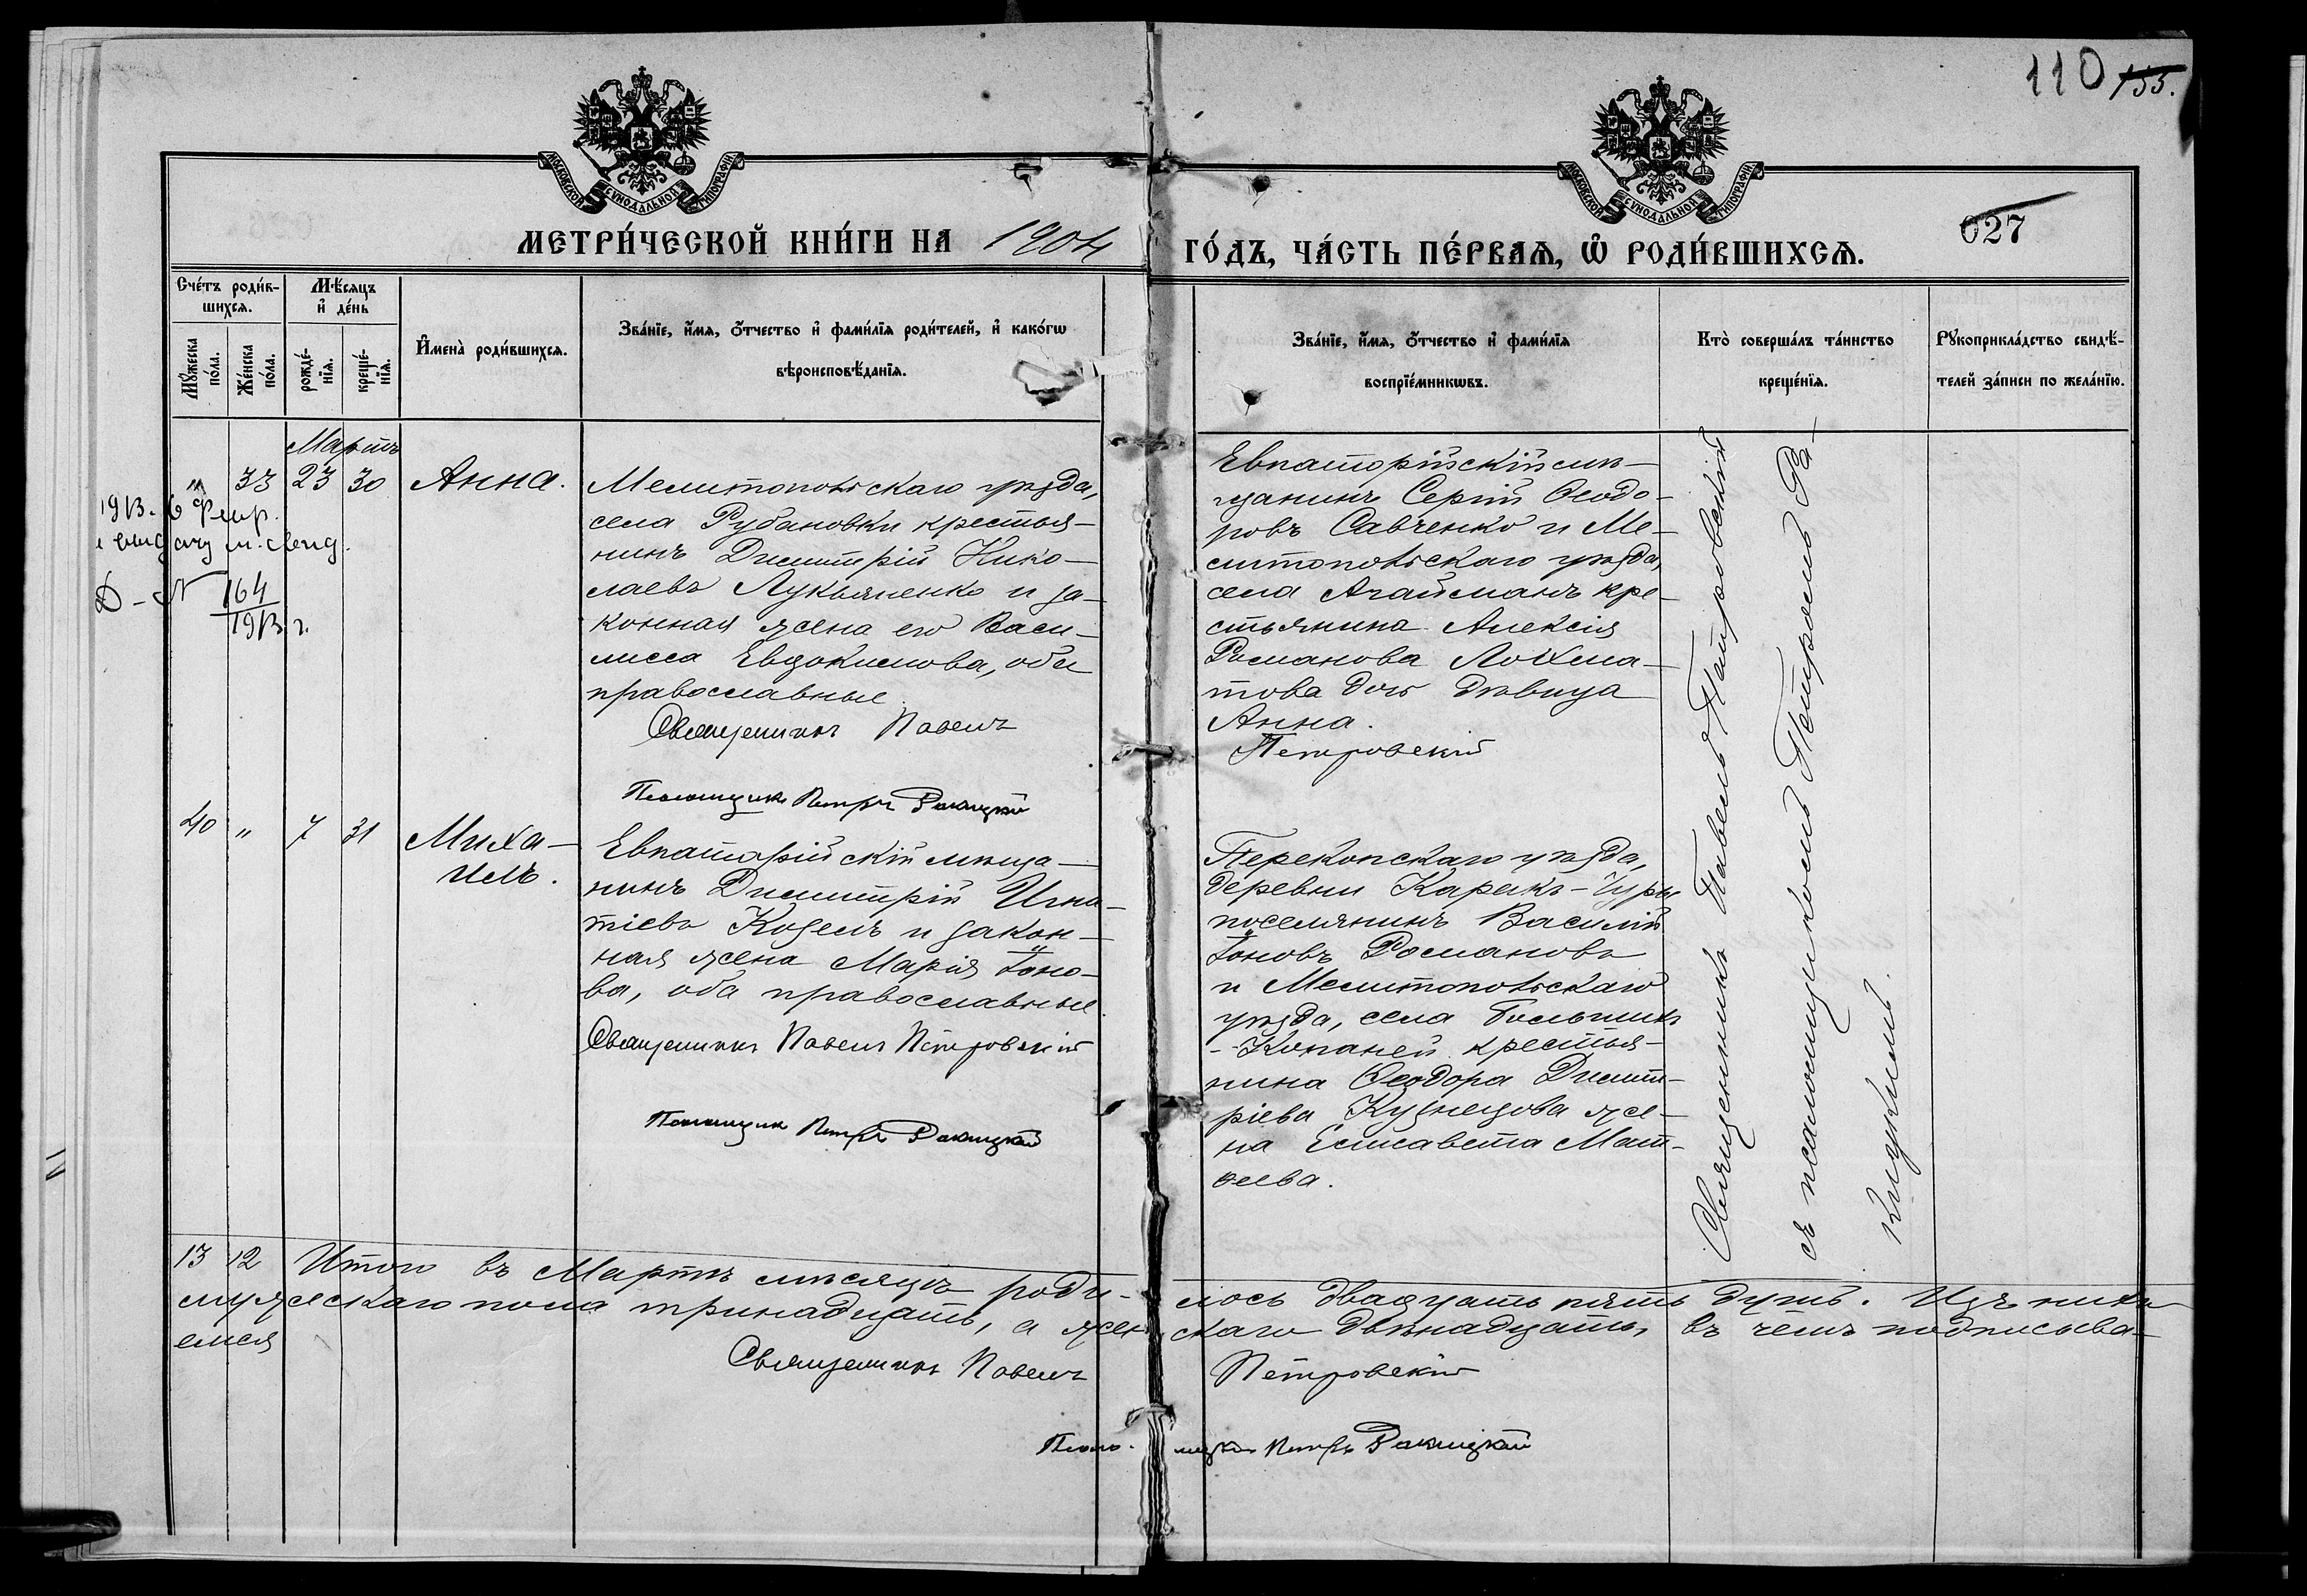 110 155.
МОСКОВСКОЙ СѴНОДАЛЬНОЙ ТИПОГРАФІИ.
МОСКОВСКОЙ СѴНОДАЛЬНОЙ ТИПОГРАФІИ.
027
МЕТРИ́ЧЕСКОЙ КНИ́ГИ НА 1904 ГО́ДЪ, ЧА́СТЬ ПЕ́РВАѦ, Ѡ҆ РОДИ́ВШИХСѦ.
Сче́тъ роди́в-
шихсѧ.
Мꙋ́жеска
по́ла.
Же́нска
по́ла.
Мѣ́сѧцъ
и҆ де́нь
рожде́-
нїѧ.
креще́-
нїѧ.
И҆мена̀ роди́вшихсѧ.
Зва́нїе, и҆́мѧ, ѻ҆́тчество и҆ фами́лїѧ роди́телей, и҆ како́гѡ
вѣроисповѣ́данїѧ.
Зва́нїе, и҆́мѧ, ѻ҆́тчество и҆ фами́лїѧ
воспрїе́мникѡвъ.
Кто̀ соверша́лъ та́инство
креще́нїѧ.
Рꙋкоприкла́дство свидѣ́-
телей за́писи по жела́нїю.
Мартъ
" 33 23 30 Анна.
Мелитопольскаго уѣзда,
села Рубановки крестья-
нинъ Димитрій Нико-
лаевъ Лукьяненко и за-
конная жена его Васи-
лисса Евдокимова, оба
православные
Священникъ Павелъ
Петровскій
Псаломщикъ Петръ Ракицкій
1913. 6 Февр.
выдачу м. свид.
D - N 164
1913 г.
Евпаторійскій мѣ-
щанинъ Сергій Ѳеодо-
ровъ Савченко и Ме-
литопольскаго уѣзда,
села Агайманъ кре-
стьянина Алексія
Романова Лохма-
това дочь дѣвица
Анна.
40 " 7 31 Миха-
илъ.
Евпаторійскій мѣща-
нинъ Димитрій Игна-
тіевъ Козелъ и закон-
ная жена Марія Іоно-
ва, оба православные
Священникъ Павелъ Петровскій
Псаломщикъ Петръ Ракицкій
Перекопскаго уѣзда,
деревни Каракъ-Чуры
поселянинъ Василій
Іоновъ Романовъ
и Мелитопольскаго
уѣзда, села Большихъ
-Копаней крестья-
нина Ѳеодора Димит-
ріева Кузнецова же-
на Елисавета Мат-
ѳеева.
Священникъ Павелъ Петровскій
съ псаломщикомъ Петромъ Ра-
кицкимъ.
13 12 Итого въ Мартѣ мѣсяцѣ роди-лось двадцать пять душъ. Изъ нихъ
мужескаго пола тринадцать, а женскаго двѣнадцать, въ чемъ подписыва-
емся
Священникъ Павелъ Петровскій
Псаломщикъ Петръ Ракицкій